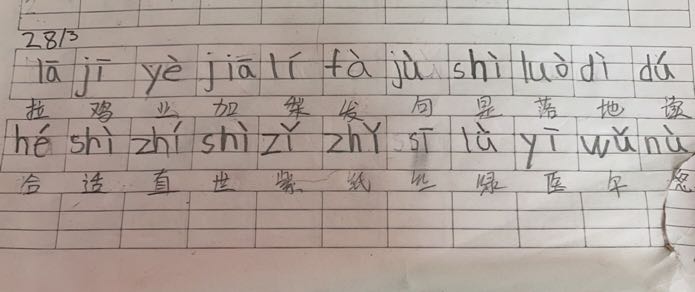 28/3
lā jī yè jiā lí fà jù shì luò dì dú
拉 鸡 业 加 发 句 是 落 地 读
hé shì zhí shì zǐ zhǐ sī lǜ yī wǔ nù
合 适 直 世 紫 纸 丝 绿 医 午 怒